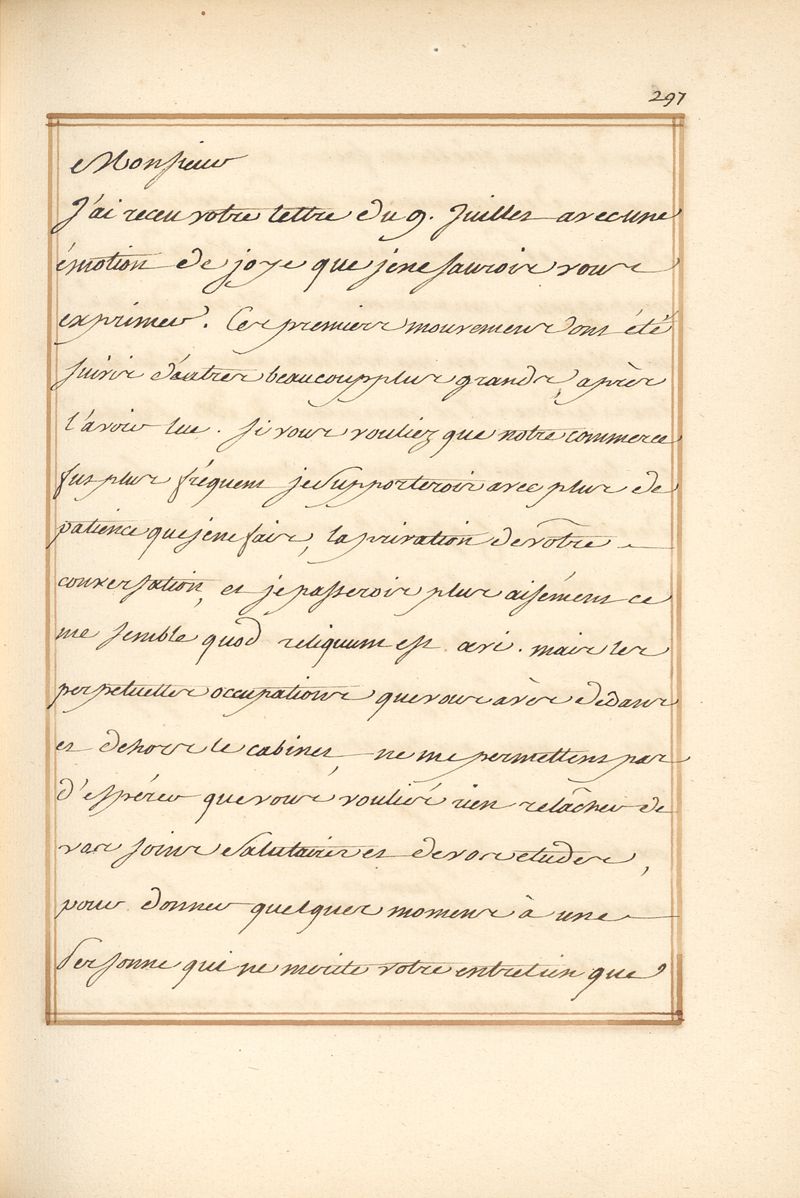 297
Monsieur
J'ai receu votre lettre du 9. Juillet avec une
émotion de joye que je ne saurois vous
exprimer. Ces premiers mouvemens ont été
suivis d'autres beaucoup plus grands, après
l'avoir lue. Si vous vouliez que notre commerce
fut plus fréquent je supporterois avec plus de
patience que je ne fais, la privation de vôtre
conversation, et je passerois plus aisément ce
me semble quod reliquum est ævi. mais les
perpetuelles occupations que vous avés dedans
et dehors le cabinet, ne me permettent pas
d'espérer que vous vouliés rien relâcher de
vos soins salutaires et de vos etudes,
pour donner quelques momens à une
Personne qui ne merite votre entretien que